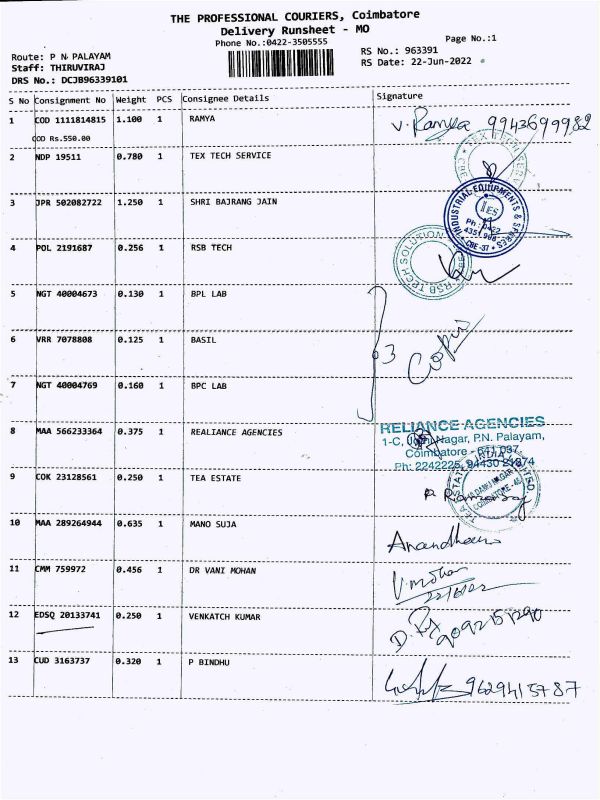 THE PROFESSIONAL COURIERS, Coimbatore
Delivery Runsheet - MO
Phone No.:0422-3505555
Page No.:1
Route: P N PALAYAM
RS No.: 963391
Staff: THIRUVIRAJ
RS Date: 22-Jun-2022
DRS No.: DCJB96339101
S No Consignment No Weight PCS Consignee Details Signature
1 COD 1111814815 1.100 1 RAMYA V. Ramya 9943699982
COD Rs.550.00
2 NDP 19511 0.780 1 TEX TECH SERVICE
3 JPR 502082722 1.250 1 SHRI BAJRANG JAIN
INDUSTRIAL EQUIPMENTS & SPARES
IES
Ph: 0422
CBE-37
4 POL 2191687 0.256 1 RSB TECH
RSB TECH SOLUTION
5 NGT 40004673 0.130 1 BPL LAB
6 VRR 7078808 0.125 1 BASIL
3
7 NGT 40004769 0.160 1 BPC LAB
8 MAA 566233364 0.375 1 REALIANCE AGENCIES
RELIANCE AGENCIES
1-C, Nagar, P.N. Palayam,
Coimbatore - 641 037
Ph: 2242225, 94430 21874
9 COK 23128561 0.250 1 TEA ESTATE
10 MAA 289264944 0.635 1 MANO SUJA
11 CMM 759972 0.456 1 DR VANI MOHAN V. mohan
22/6/22
12 EDSQ 20133741 0.250 1 VENKATCH KUMAR
13 CUD 3163737 0.320 1 P BINDHU 9629415787